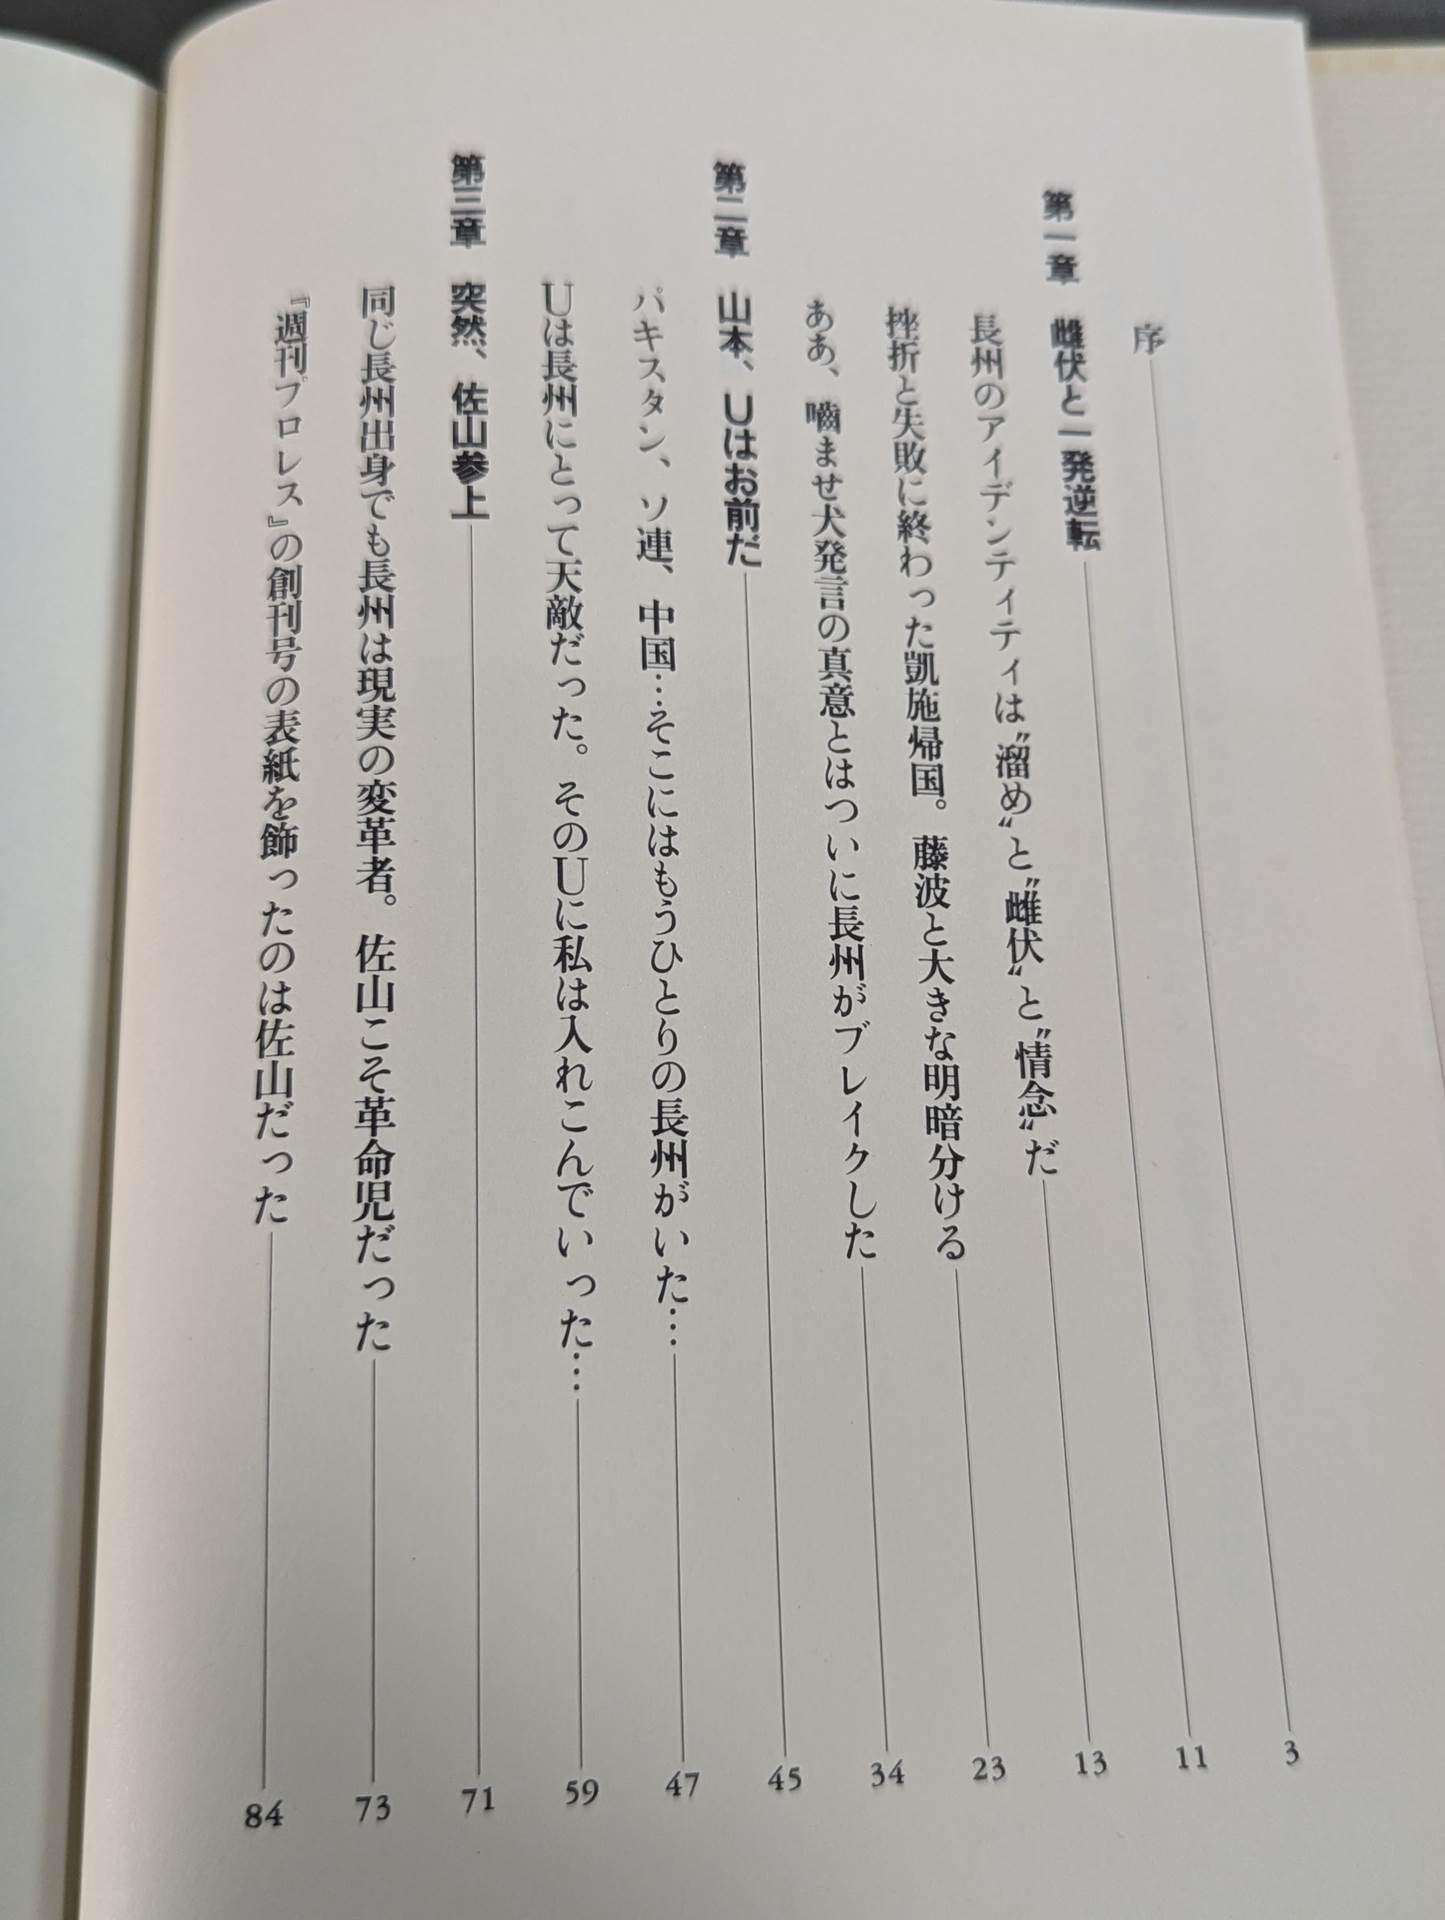 序 3
第一章 雌伏と一発逆転 11
長州のアイデンティティは〝溜め〟と〝雌伏〟と〝情念〟だ 13
挫折と失敗に終わった凱旋帰国。藤波と大きな明暗分ける 23
ああ、噛ませ犬発言の真意とはついに長州がブレイクした 34
第二章 山本、Uはお前だ 45
パキスタン、ソ連、中国…そこにはもうひとりの長州がいた… 47
Uは長州にとって天敵だった。そのUに私は入れこんでいった… 59
第三章 突然、佐山参上 71
同じ長州出身でも長州は現実の変革者。佐山こそ革命児だった 73
『週刊プロレス』の創刊号の表紙を飾ったのは佐山だった 84